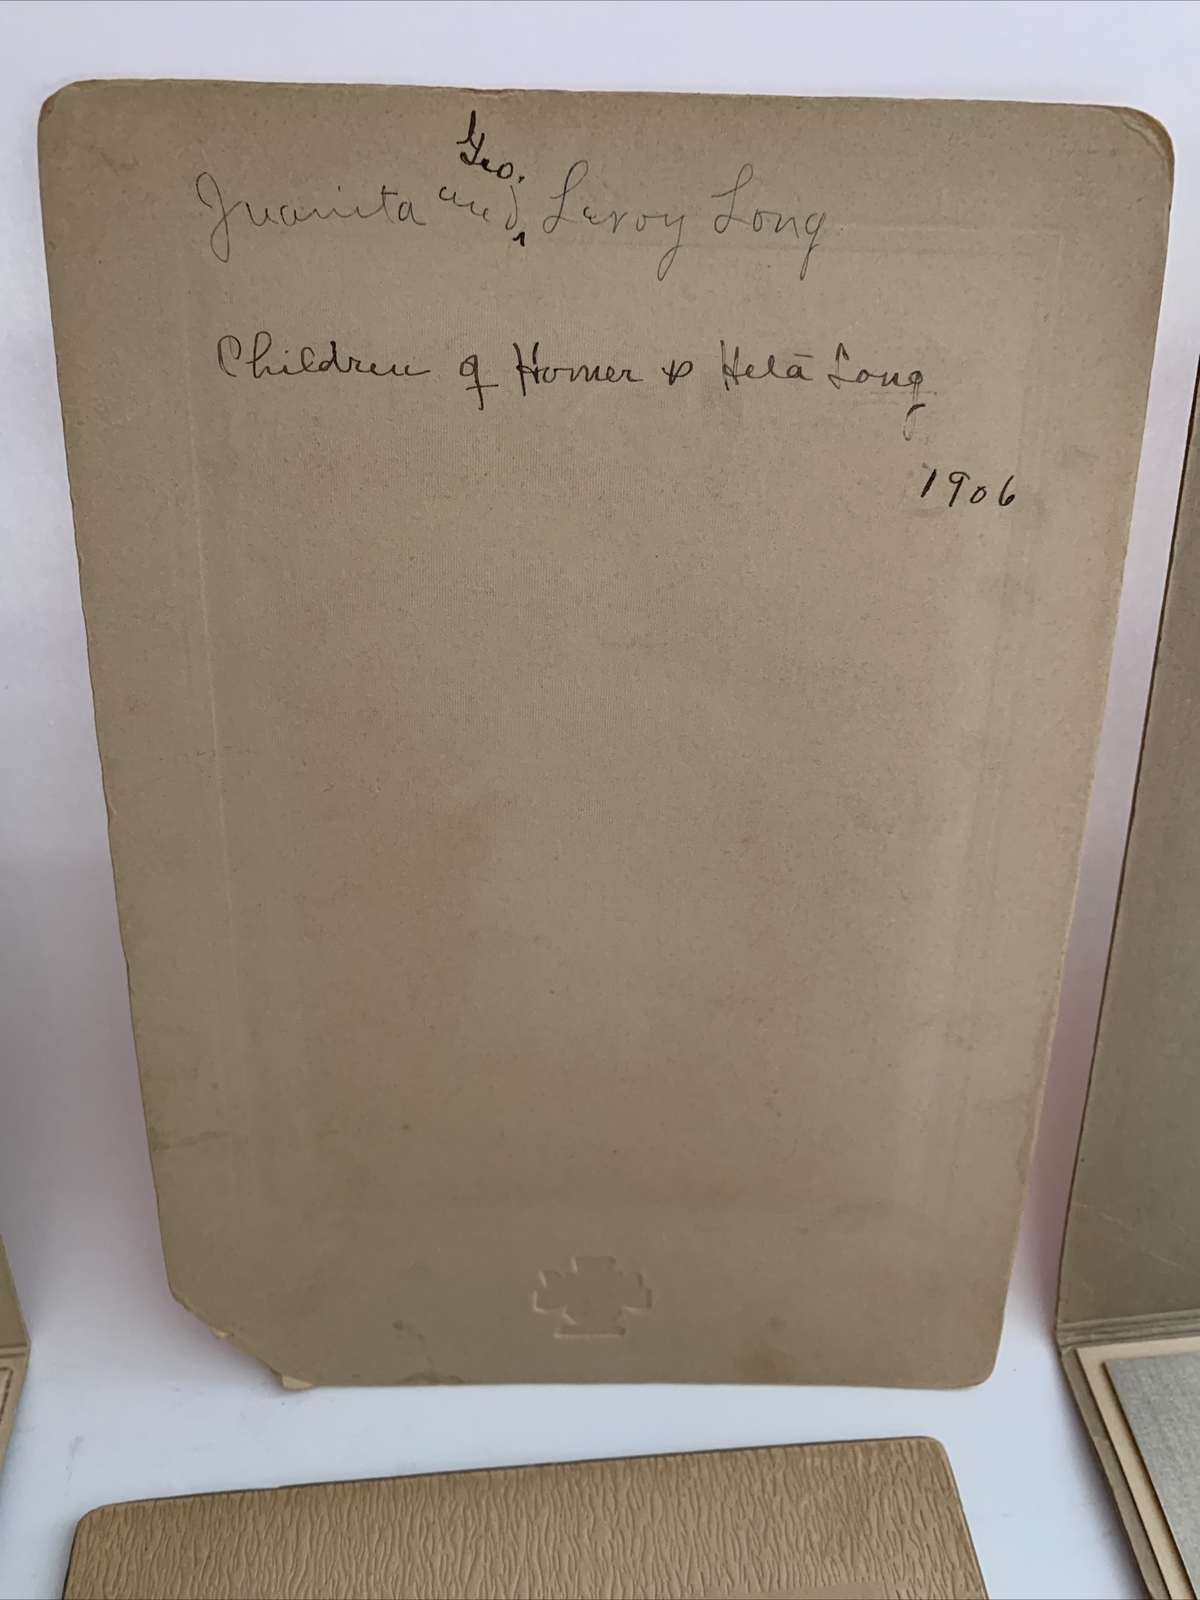 Juanita and Geo. Leroy Long
Children of Homer & Heta Long
1906